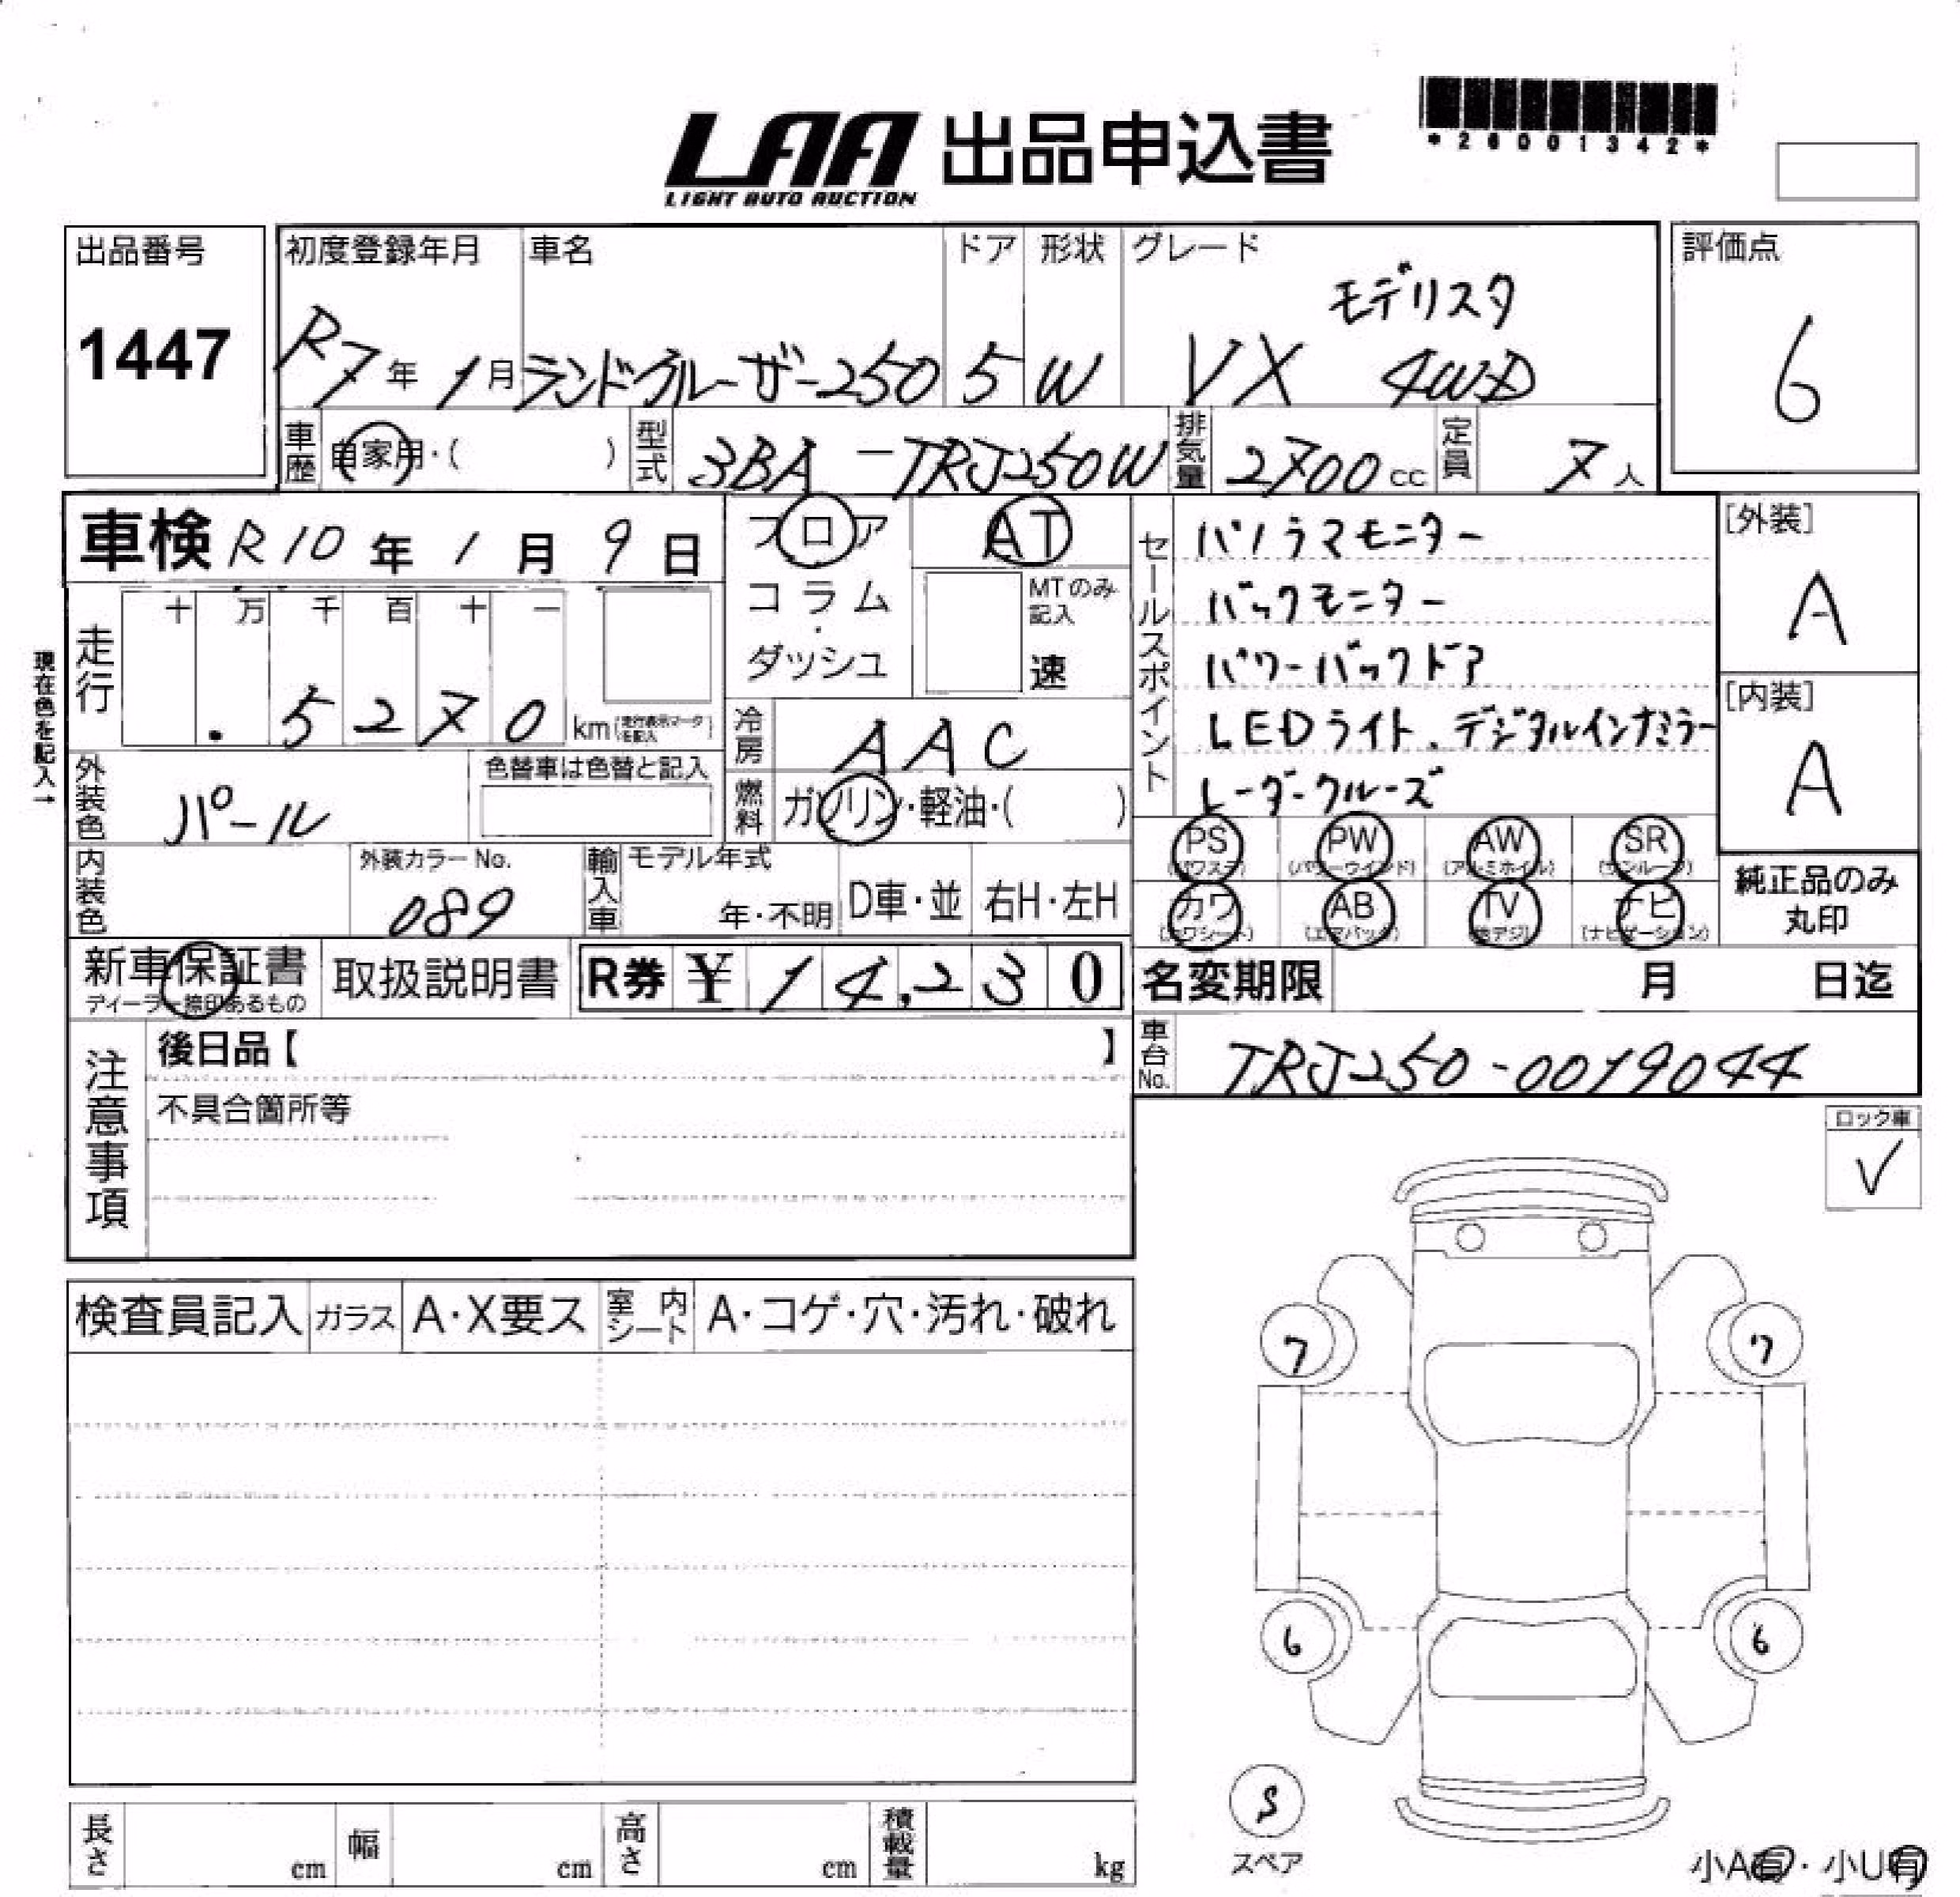 LAA 出品申込書
LIGHT AUTO AUCTION
*26001342*
出品番号
1447
初度登録年月
R7年 1月
車名
ランドクルーザー250
ドア
5
形状
W
グレード
モデリスタ
VX 4WD
評価点
6
車歴 自家用・( )
型式 3BA-TRJ250W
排気量 2700cc
定員 7人
車検 R10年 1月 9日
フロア
コラム・ダッシュ
AT
MTのみ記入
速
セールスポイント
パノラマモニター
バックモニター
パワーバックドア
LEDライト、デジタルインナミラー
レーダークルーズ
[外装]
A
[内装]
A
現在色を記入→
走行
十 万 千 百 十 一
.5270 km(走行表示マークを記入)
冷房 AAC
外装色 パール
色替車は色替と記入
燃料 ガソリン・軽油・( )
PS (パワステ)
PW (パワーウインド)
AW (アルミホイル)
SR (サンルーフ)
カワ (カワシート)
AB (エアバック)
TV (地デジ)
ナビ (ナビゲーション)
純正品のみ
丸印
内装色
外装カラーNo.
089
輸入車
モデル年式
年・不明
D車・並
右H・左H
新車保証書
ディーラー捺印あるもの
取扱説明書
R券 ¥14,230
名変期限 月 日迄
車台No. TRJ250-0079044
注意事項
後日品【 】
不具合箇所等
ロック車
✓
検査員記入
ガラス A・X要ス
室内シート A・コゲ・穴・汚れ・破れ
7 7
6 6
S
スペア
長さ cm
幅 cm
高さ cm
積載量 kg
小A有・小U有